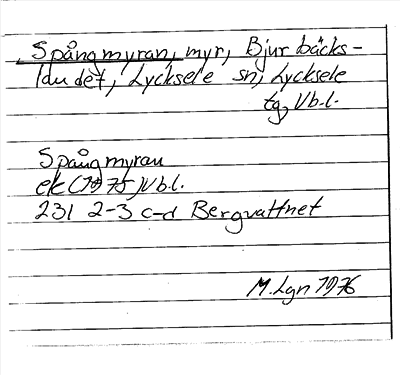 Spångmyran, myr, Bjurbäcks-
ludet, Lycksele sn, Lycksele
tg, Vb.l.
Spångmyran
ek (1975) Vb.l.
231 2-3 c-d Bergvattnet
M. Lgn 1976